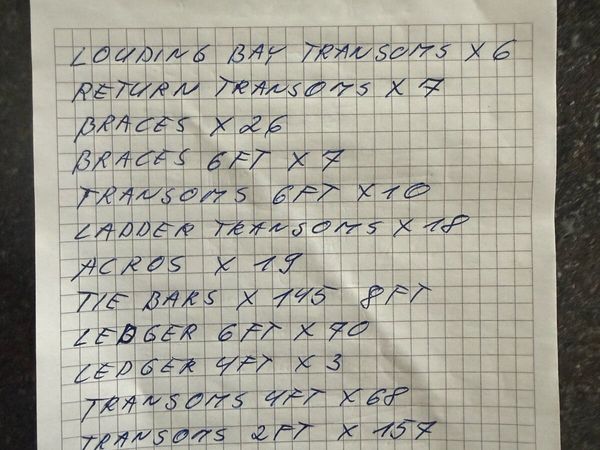 LOUDING BAY TRANSOMS X 6
RETURN TRANSOMS X 7
BRACES X 26
BRACES 6FT X 7
TRANSOMS 6FT X 10
LADDER TRANSOMS X 18
ACROS X 19
TIE BARS X 145 8FT
LEDGER 6FT X 70
LEDGER 4FT X 3
TRANSOMS 4FT X 68
TRANSOMS 2FT X 157